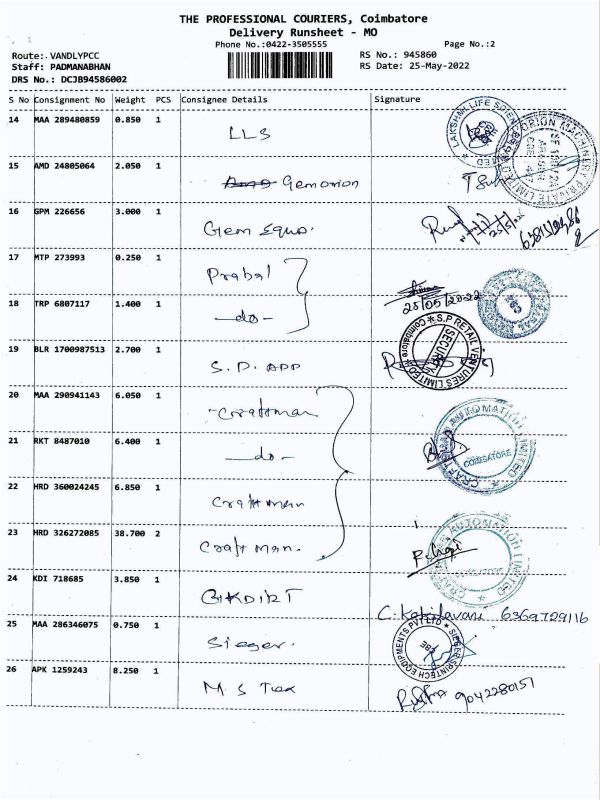 THE PROFESSIONAL COURIERS, Coimbatore
Delivery Runsheet - MO
Phone No.:0422-3505555
Page No.:2
Route: VANDLYPCC
Staff: PADMANABHAN
DRS No.: DCJB94586002
RS No.: 945860
RS Date: 25-May-2022
S No Consignment No Weight PCS Consignee Details Signature
14 MAA 289480859 0.850 1 LLS
15 AMD 24805064 2.050 1 Gemorion
16 GPM 226656 3.000 1 Gem Equo.
17 MTP 273993 0.250 1 Prabal
18 TRP 6807117 1.400 1 -do- 25/05/2022
19 BLR 1700987513 2.700 1 S.P. APP
S.P RETAIL VENTURES LIMITED * Coimbatore *
SECURITY
20 MAA 290941143 6.050 1 Craftsman
21 RKT 8487010 6.400 1 -do-
CRAFTSMAN AUTOMATION LIMITED
COIMBATORE
22 HRD 360024245 6.850 1 Craftman
23 HRD 326272085 38.700 2 Craftman.
CRAFTSMAN AUTOMATION LIMITED
COIMBATORE
24 KDI 718685 3.850 1 6369729116
25 MAA 286346075 0.750 1 Sieger.
26 APK 1259243 8.250 1 M S Tex 9042280157